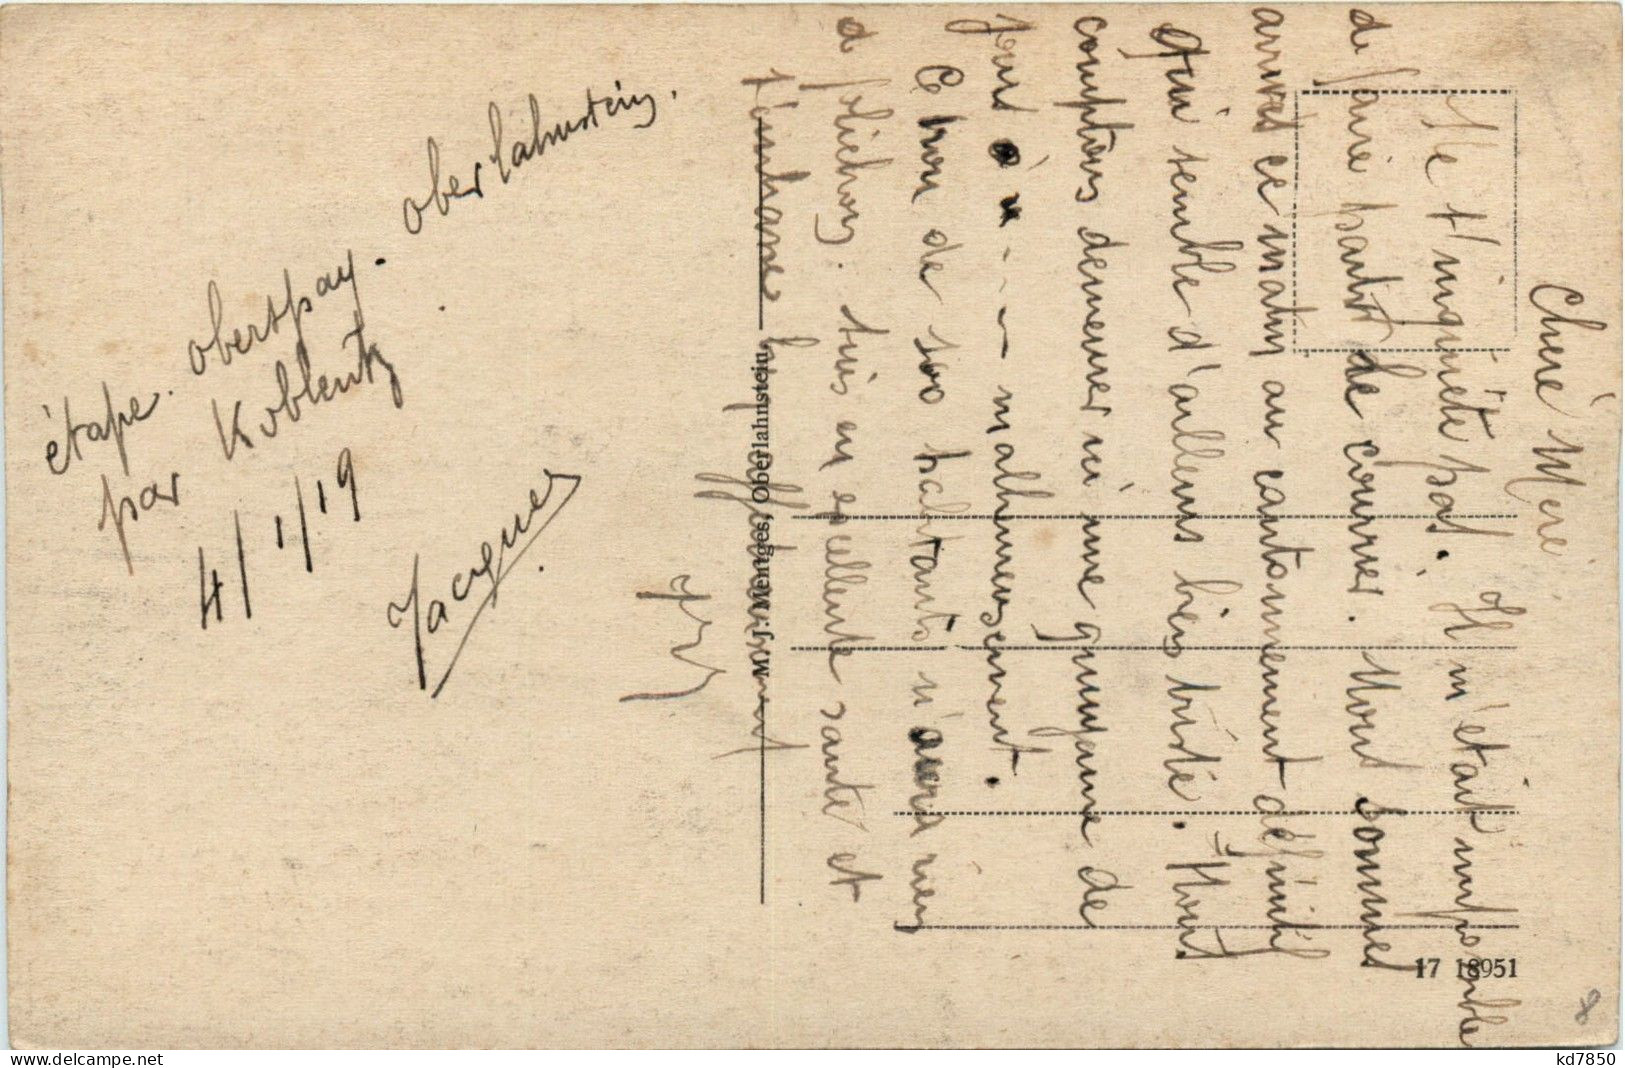 Chère Mère
Ne t'inquiète pas. Il m'était impossible
de faire partir de courrier. Nous sommes
arrivés ce matin au cantonnement définitif
qui semble d'ailleurs bien triste. Nous
comptons demeurer ici une quinzaine de
jours à malheureusement.
Ce trou de 500 habitants n'aura rien
de folichon. suis en excellente santé et
t'embrasse affectueusement
étape. oberspay. oberlahnstein.
par Koblentz
4/1/19
Jacques
M. J. Mentges, Oberlahnstein.
17 18951
8
www.delcampe.net
kd7850